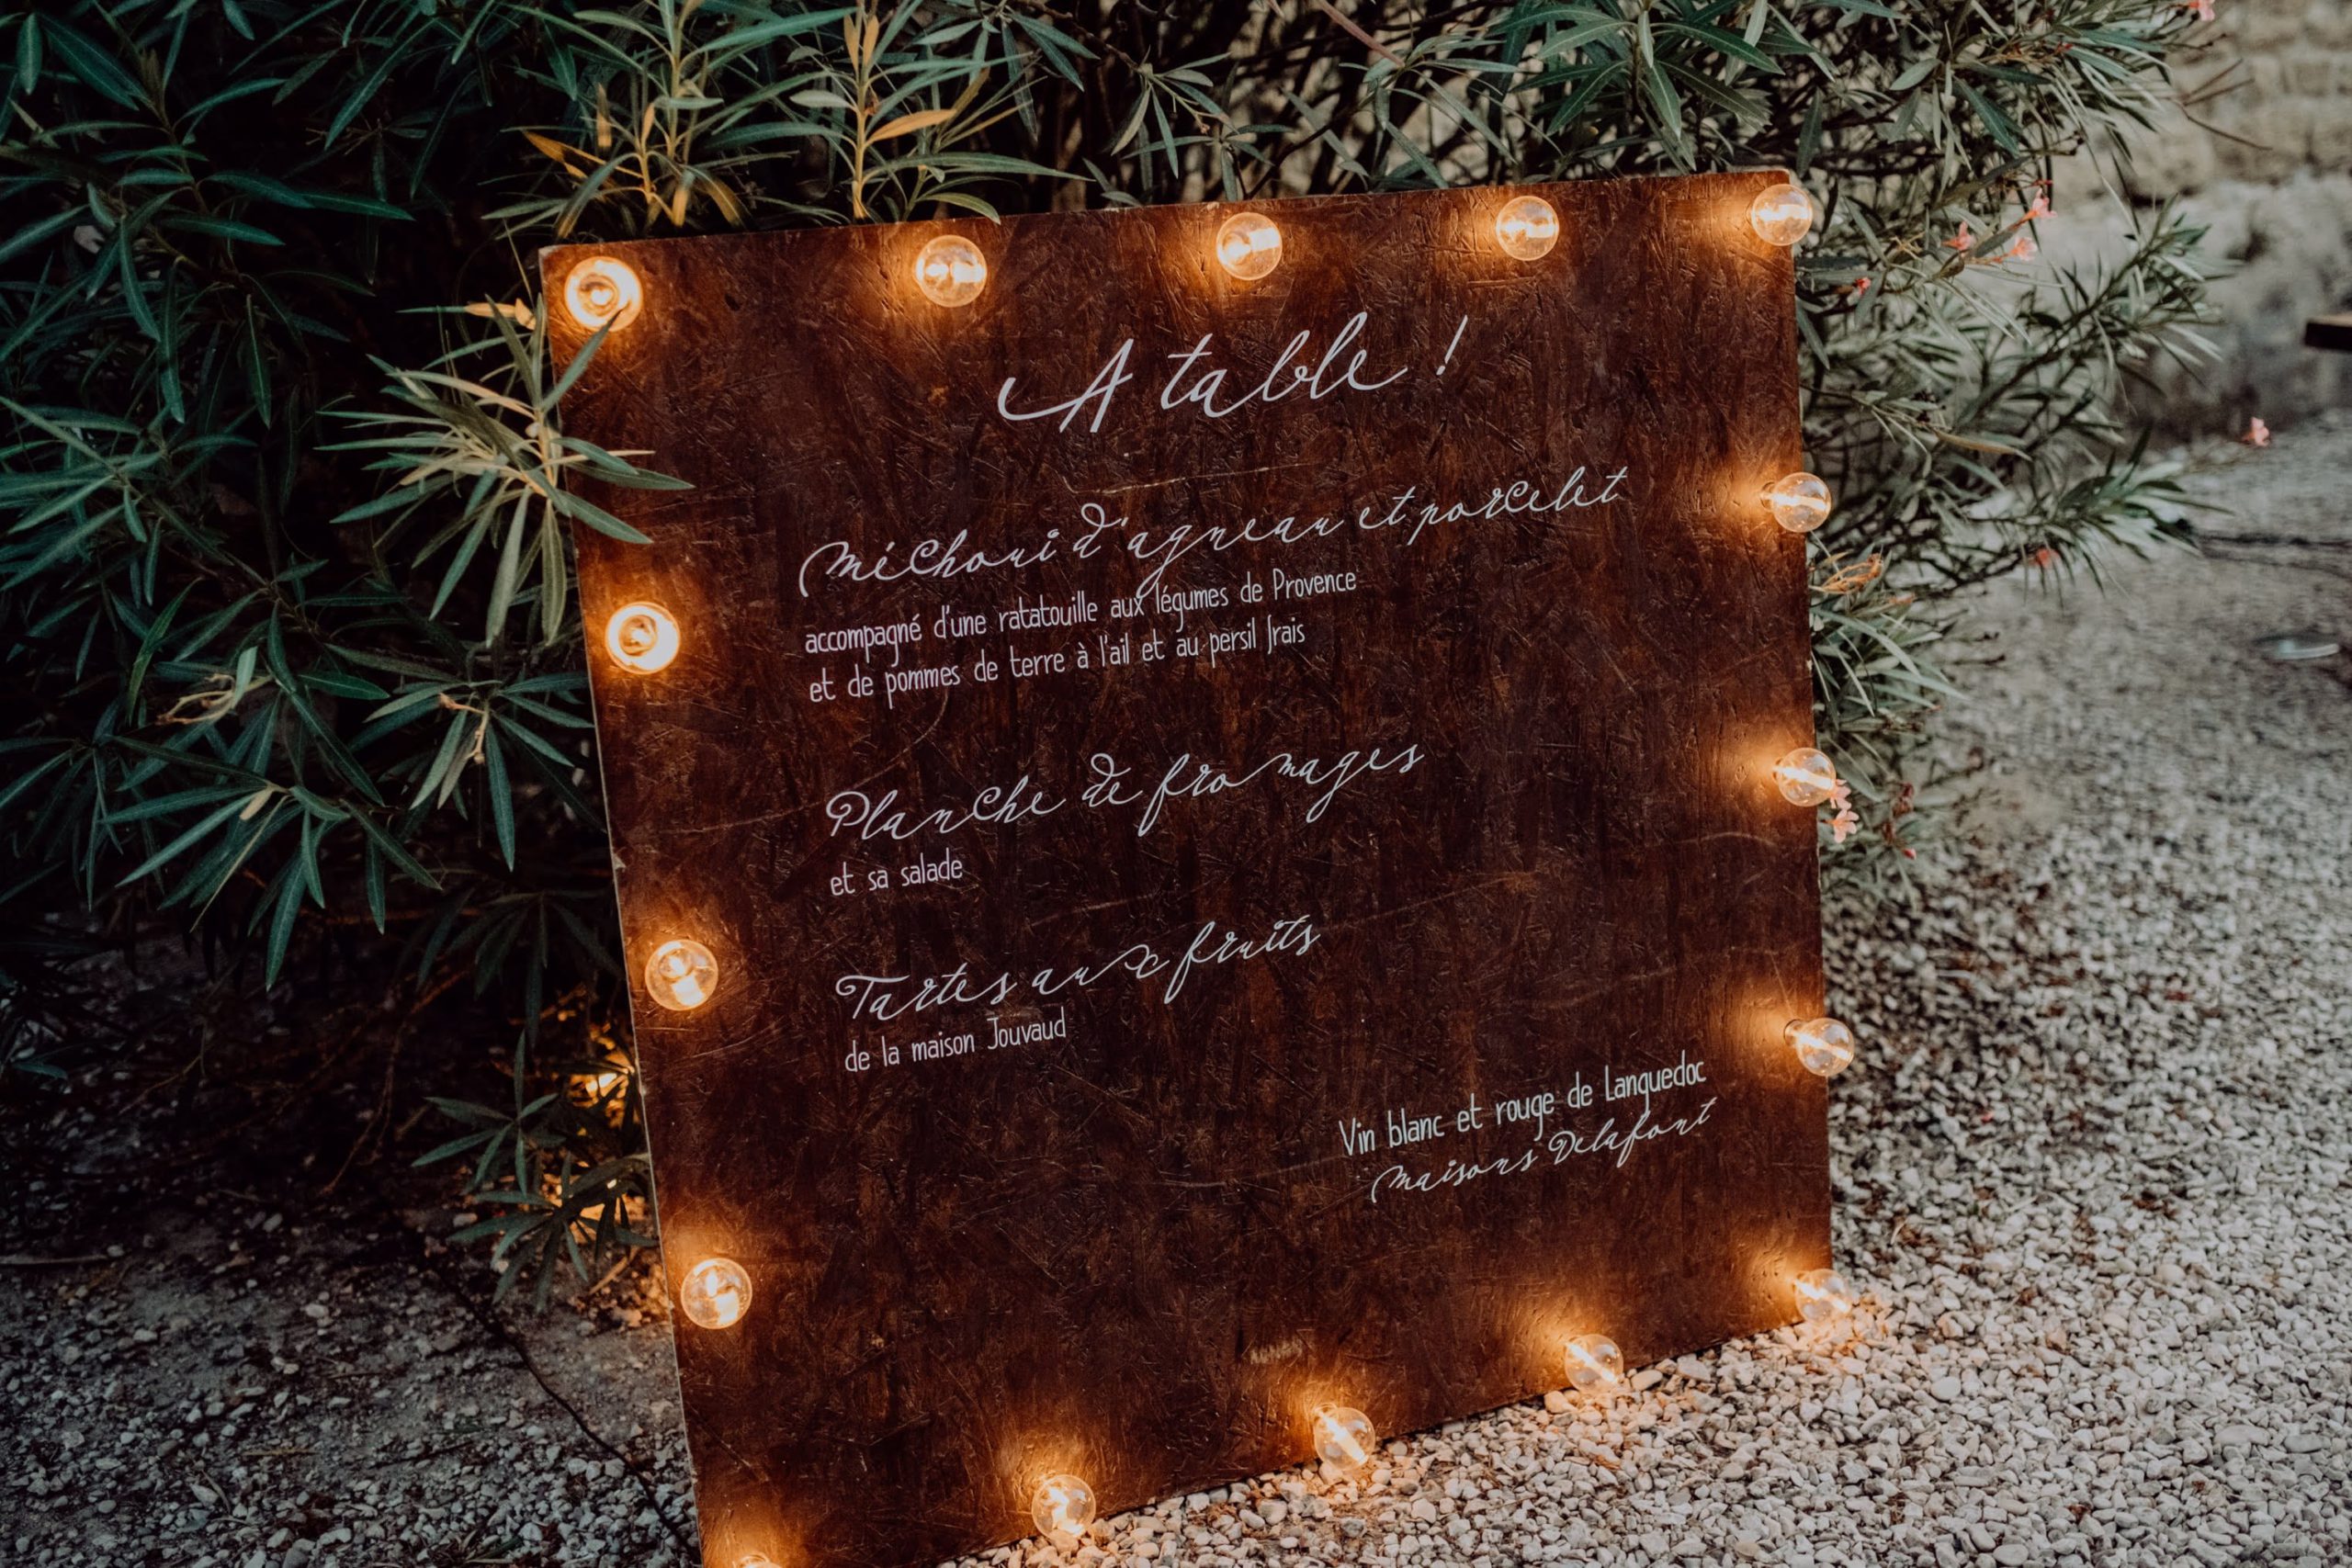 A table !
Méchoui d'agneau et porcelet
accompagné d'une ratatouille aux légumes de Provence
et de pommes de terre à l'ail et au persil frais
Planche de fromages
et sa salade
Tartes aux fruits
de la maison Jouvaud
Vin blanc et rouge de Languedoc
Maisons Delafont